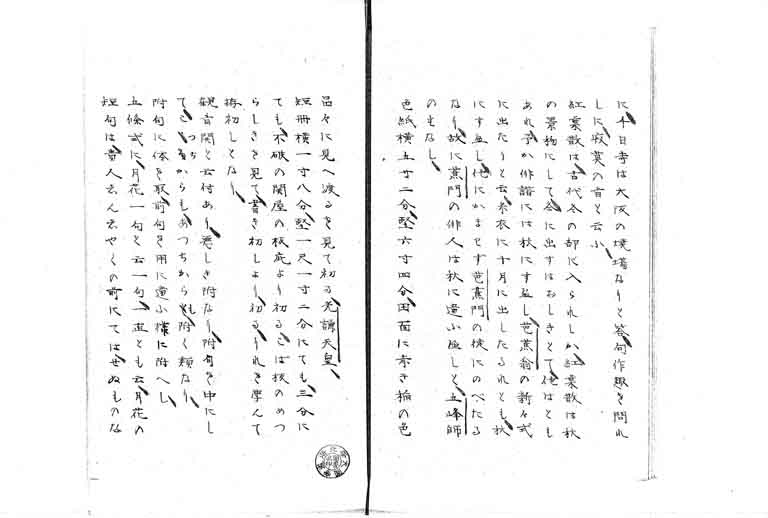 に千日寺は大阪の境墓なりと答向作趣を問れ
しに寂莫の音と云ふ
紅葉散は古代冬の部に入られしか紅葉散は秋
の景物にして冬に出すはおしきとて他はとも
あれ予か俳諧には秋にす並し芭蕉翁の新々式
に出たりと云糸衣に十月に出したるれとも秋
にす並し他にかまとす芭蕉門の徒にのべたる
なり故に蕉門の俳人は秋に遣ふ並しと五峰師
のもなし
色紙横五寸二分竪六寸四分田苗に赤き稲の色
品々に見へ渡るを見て初る元謙天皇
短冊横一寸八分竪一尺一寸二分にても三分に
ても不破の関屋の板庇より初るこは板のめつ
らしきを見て書き初しより初るうれを学んて
拵初しとなり
観音開と云付あり悪しき附なり附句を中にし
てこちからもあつちからも附く類なり
附句に体を取前句を用に遣ふ様に附へし
五條式に月花一句と云一句一直とも云月花の
短句は貴人えんせやくの前にてはせぬものな